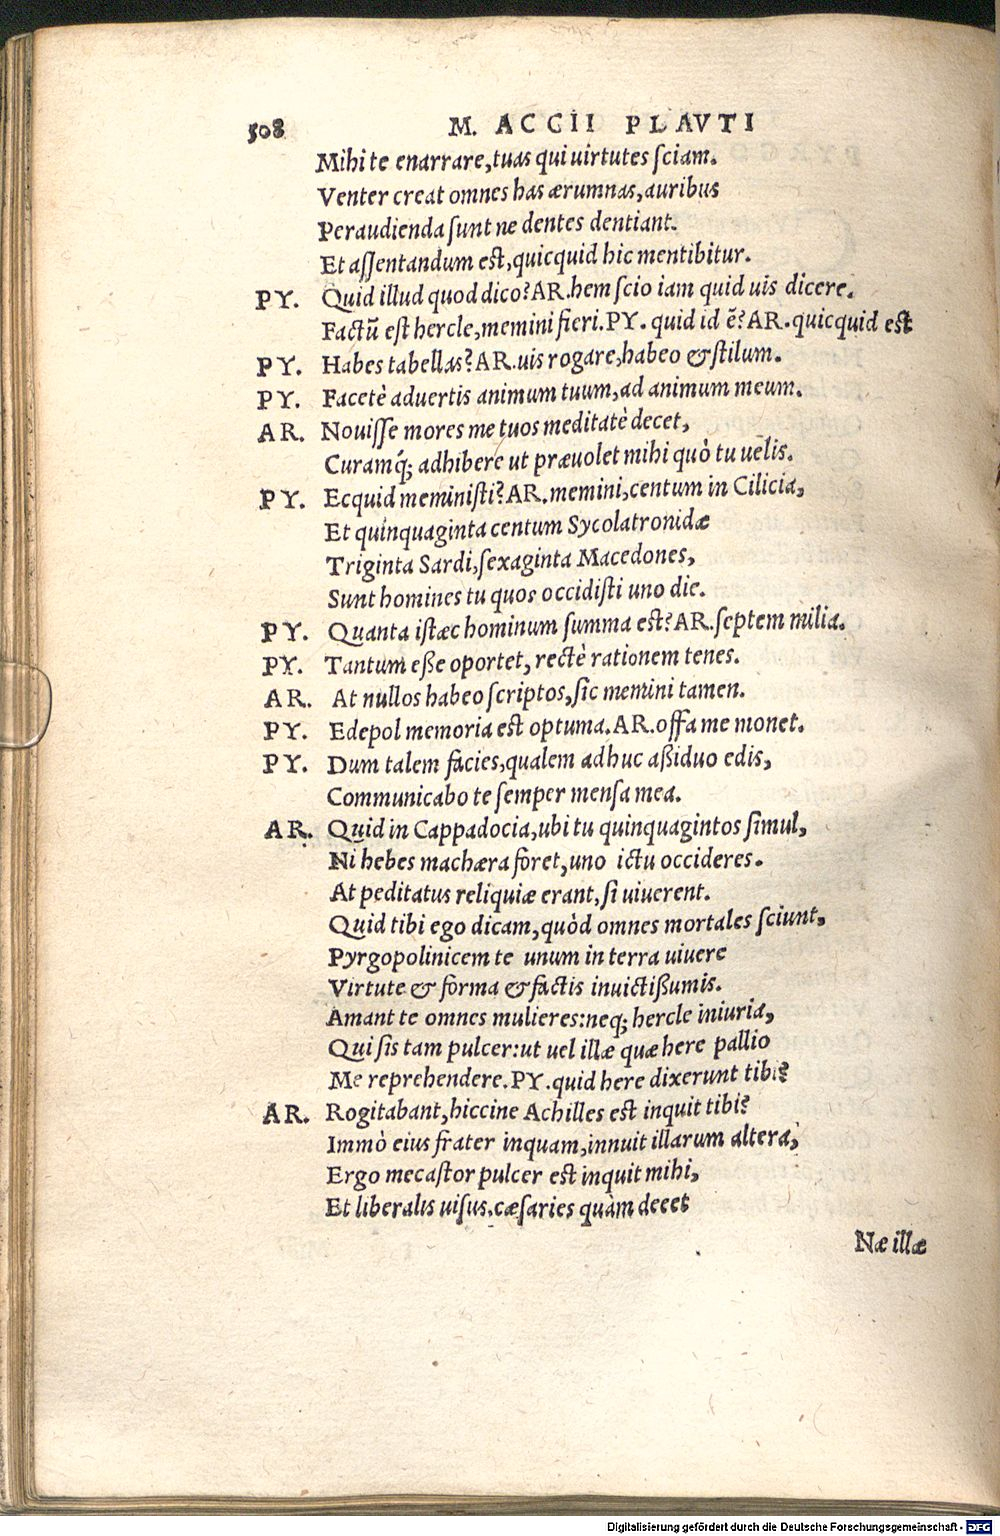 508 M. ACCII PLAVTI
Mihi te enarrare, tuas qui uirtutes sciam.
Venter creat omnes has ærumnas, auribus
Peraudienda sunt ne dentes dentiant.
Et assentandum est, quicquid hic mentibitur.
PY. Quid illud quod dico? AR. hem scio iam quid uis dicere.
Factū est hercle, memini fieri. PY. quid id ē? AR. quicquid est
PY. Habes tabellas? AR. uis rogare, habeo & stilum.
PY. Facetè aduertis animum tuum, ad animum meum.
AR. Nouisse mores me tuos meditatè decet,
Curamq́; adhibere ut præuolet mihi quò tu uelis.
PY. Ecquid meministi? AR. memini, centum in Cilicia,
Et quinquaginta centum Sycolatronidæ
Triginta Sardi, sexaginta Macedones,
Sunt homines tu quos occidisti uno die.
PY. Quanta istæc hominum summa est? AR. septem milia.
PY. Tantum eße oportet, rectè rationem tenes.
AR. At nullos habeo scriptos, sic memini tamen.
PY. Edepol memoria est optuma. AR. offa me monet.
PY. Dum talem facies, qualem adhuc aßiduo edis,
Communicabo te semper mensa mea.
AR. Quid in Cappadocia, ubi tu quinquagintos simul,
Ni hebes machæra foret, uno ictu occideres.
At peditatus reliquiæ erant, si uiuerent.
Quid tibi ego dicam, quòd omnes mortales sciunt,
Pyrgopolinicem te unum in terra uiuere
Virtute & forma & factis inuictißumis.
Amant te omnes mulieres: neq; hercle iniuria,
Qui sis tam pulcer: ut uel illæ quæ here pallio
Me reprehendere. PY. quid here dixerunt tibi?
AR. Rogitabant, hiccine Achilles est inquit tibi?
Immò eius frater inquam, innuit illarum altera,
Ergo mecastor pulcer est inquit mihi,
Et liberalis uisus, cæsaries quàm decet
Næ illæ
Digitalisierung gefördert durch die Deutsche Forschungsgemeinschaft - DFG